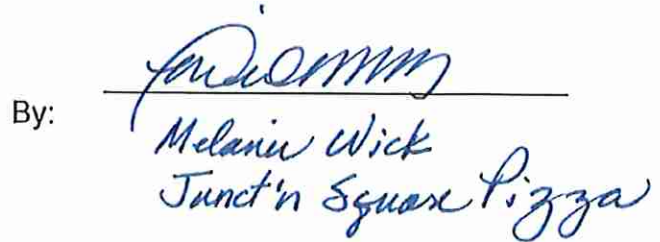 By:
Melanie Wick
Junct'n Square Pizza